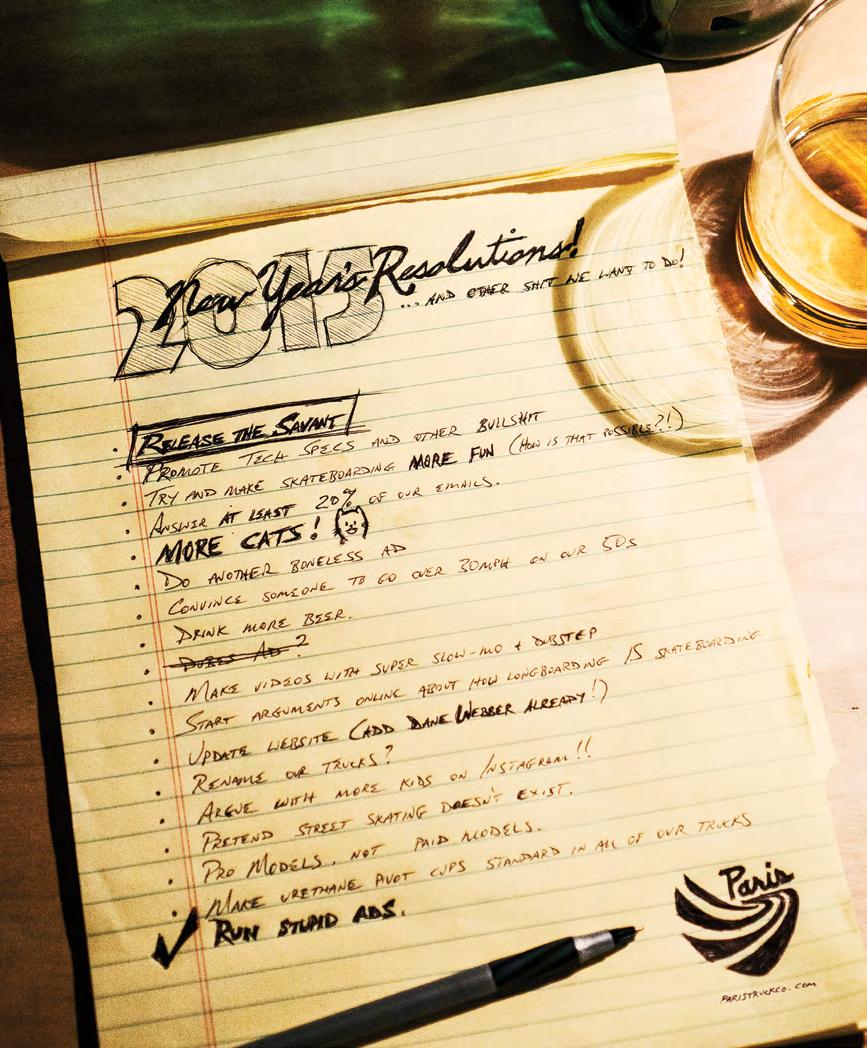 2015
New Year's Resolutions!
...AND OTHER SHIT WE WANT TO DO!
• RELEASE THE SAVANT
• PROMOTE TECH SPECS AND OTHER BULLSHIT
• TRY AND MAKE SKATEBOARDING MORE FUN (HOW IS THAT POSSIBLE?!)
• ANSWER AT LEAST 20% OF OUR EMAILS.
• MORE CATS!
• DO ANOTHER BONELESS AD
• CONVINCE SOMEONE TO GO OVER 30MPH ON OUR 50s
• DRINK MORE BEER.
• DUBES AD?
• MAKE VIDEOS WITH SUPER SLOW-MO + DUBSTEP
• START ARGUMENTS ONLINE ABOUT HOW LONGBOARDING IS SKATEBOARDING
• UPDATE WEBSITE (ADD DANE WEBBER ALREADY!)
• RENAME OUR TRUCKS?
• ARGUE WITH MORE KIDS ON INSTAGRAM!!
• PRETEND STREET SKATING DOESN'T EXIST.
• PRO MODELS. NOT PAID MODELS.
• MAKE URETHANE PIVOT CUPS STANDARD IN ALL OF OUR TRUCKS
✓ RUN STUPID ADS.
Paris
PARISTRUCKCO.COM